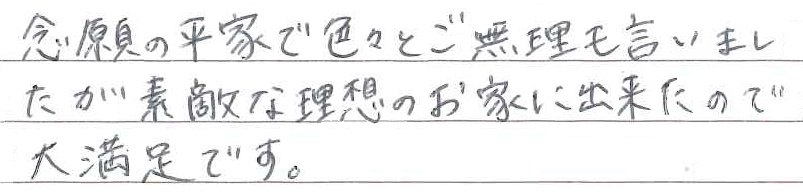 念願の平家で色々とご無理も言いまし
たが素敵な理想のお家に出来たので
大満足です。